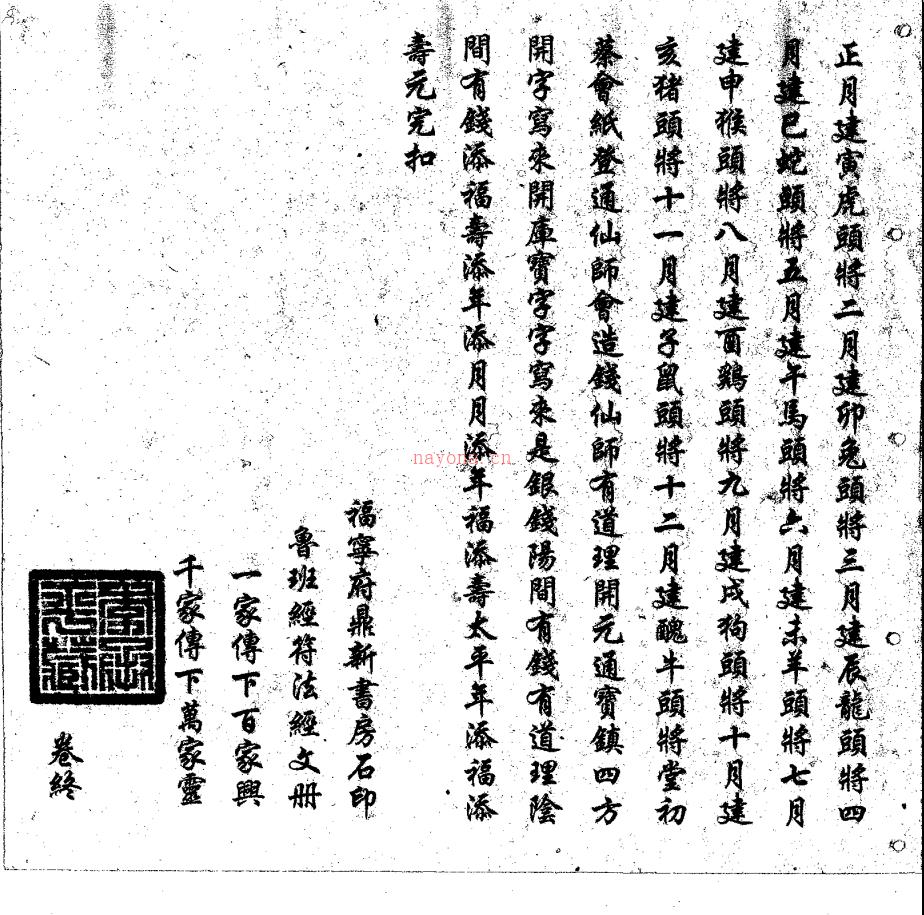 正月建寅虎頭將二月建卯兔頭將三月建辰龍頭將四
月建巳蛇頭將五月建午馬頭將六月建未羊頭將七月
建申猴頭將八月建酉鷄頭將九月建戍狗頭將十月建
亥猪頭將十一月建子鼠頭將十二月建醜牛頭將堂初
蔡會紙登通仙師會造錢仙師有道理開元通寶鎮四方
開字寫來開庫寶字字寫來是銀錢陽間有錢有道理陰
間有錢添福壽添年添月月添年福添壽太平年添福添
壽元完扣
福寧府鼎新書房石印
魯班經符法經文册
一家傳下百家興
千家傳下萬家靈
卷終
nayona.cn